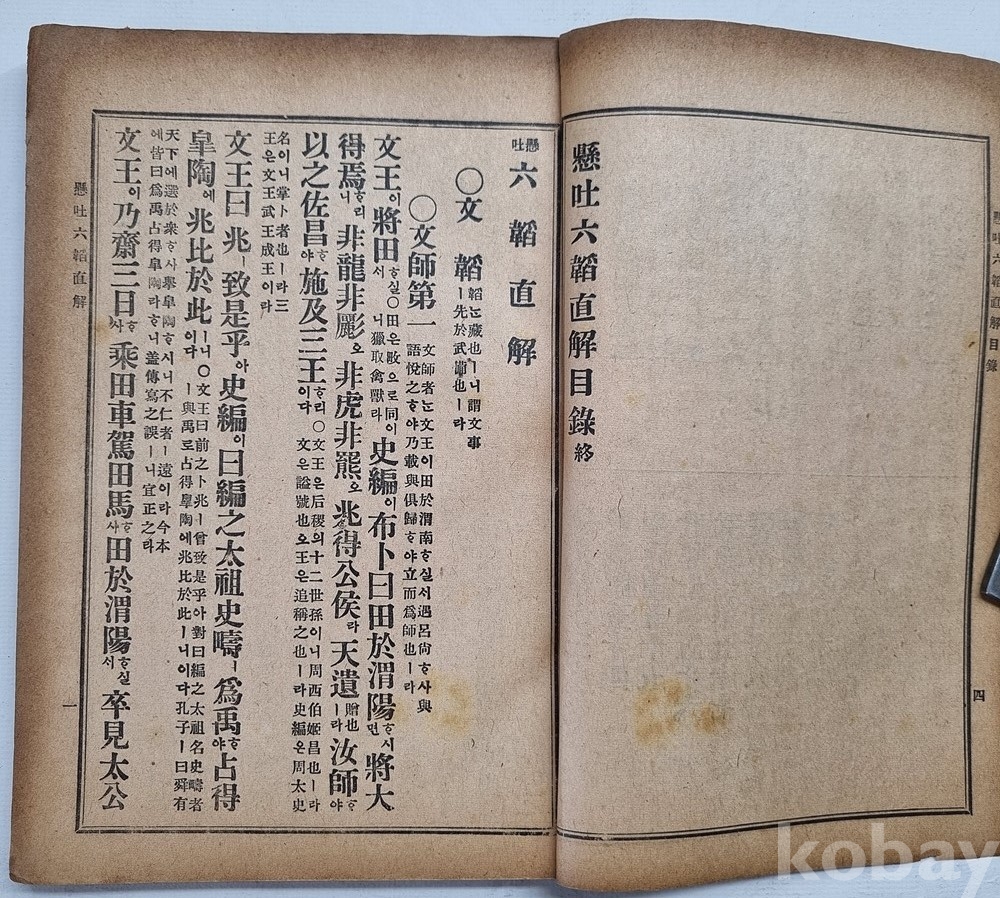 懸吐六韜直解目錄 終
懸吐六韜直解目錄
四
懸吐 六韜直解
○文韜 韜는藏也ㅣ니謂文事ㅣ先於武備也ㅣ라
○文師第一 文師者는文王이田於渭南ᄒᆞ실ᄉᆡ遇呂尙ᄒᆞ사與語悅之ᄒᆞ야乃載與俱歸ᄒᆞ야立而爲師也ㅣ라
文王이將田ᄒᆞ실서 ○田은畋으로同이니獵取禽獸라 史編이布卜曰田於渭陽ᄒᆞ시면將大
得焉ᄒᆞ리니非龍非彲오非虎非羆오兆得公侯라天遺 贈也ㅣ라 汝師ᄒᆞ야
以之佐昌ᄒᆞ야施及三王ᄒᆞ리이다 ○文王은后稷의十二世孫이니周西伯姬昌也ㅣ라文은諡號也오王은追稱之也ㅣ라史編은周太史
名이니掌卜者也ㅣ라三王은文王武王成王이라
文王曰兆ㅣ致是乎아史編이曰編之太祖史疇ㅣ爲禹ᄒᆞ야占得
皐陶에兆比於此ㅣ니이다 ○文王曰前之卜兆ㅣ曾致是乎아對曰編之太祖名史疇者ㅣ與禹로占得皐陶에兆比於此ㅣ니이다孔子ㅣ曰舜有
天下에選於衆ᄒᆞ사擧皐陶ᄒᆞ시니不仁者ㅣ遠이라今本에皆曰爲禹占得皐陶라ᄒᆞ니盖傳寫之誤ㅣ니宜正之라
文王이乃齋三日ᄒᆞ사乘田車駕田馬ᄒᆞ사田於渭陽ᄒᆞ실서卒見太公
懸吐六韜直解
一
kobay